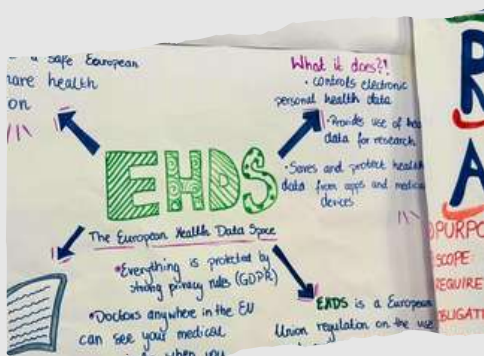 a safe European
hare health
on
What it does?!
• controls electronic
personal health data
• Provides use of hea
data for research
• Saves and protect health
data from apps and medical
devices
EHDS
The European Health Data Space
• Everything is protected by
strong privacy rules (GDPR)
• Doctors anywhere in the EU
can see your medical
when you
EHDS is a European
Union regulation on the use
R
A
PURPO
SCOPE:
REQUIRE
BLIGATI